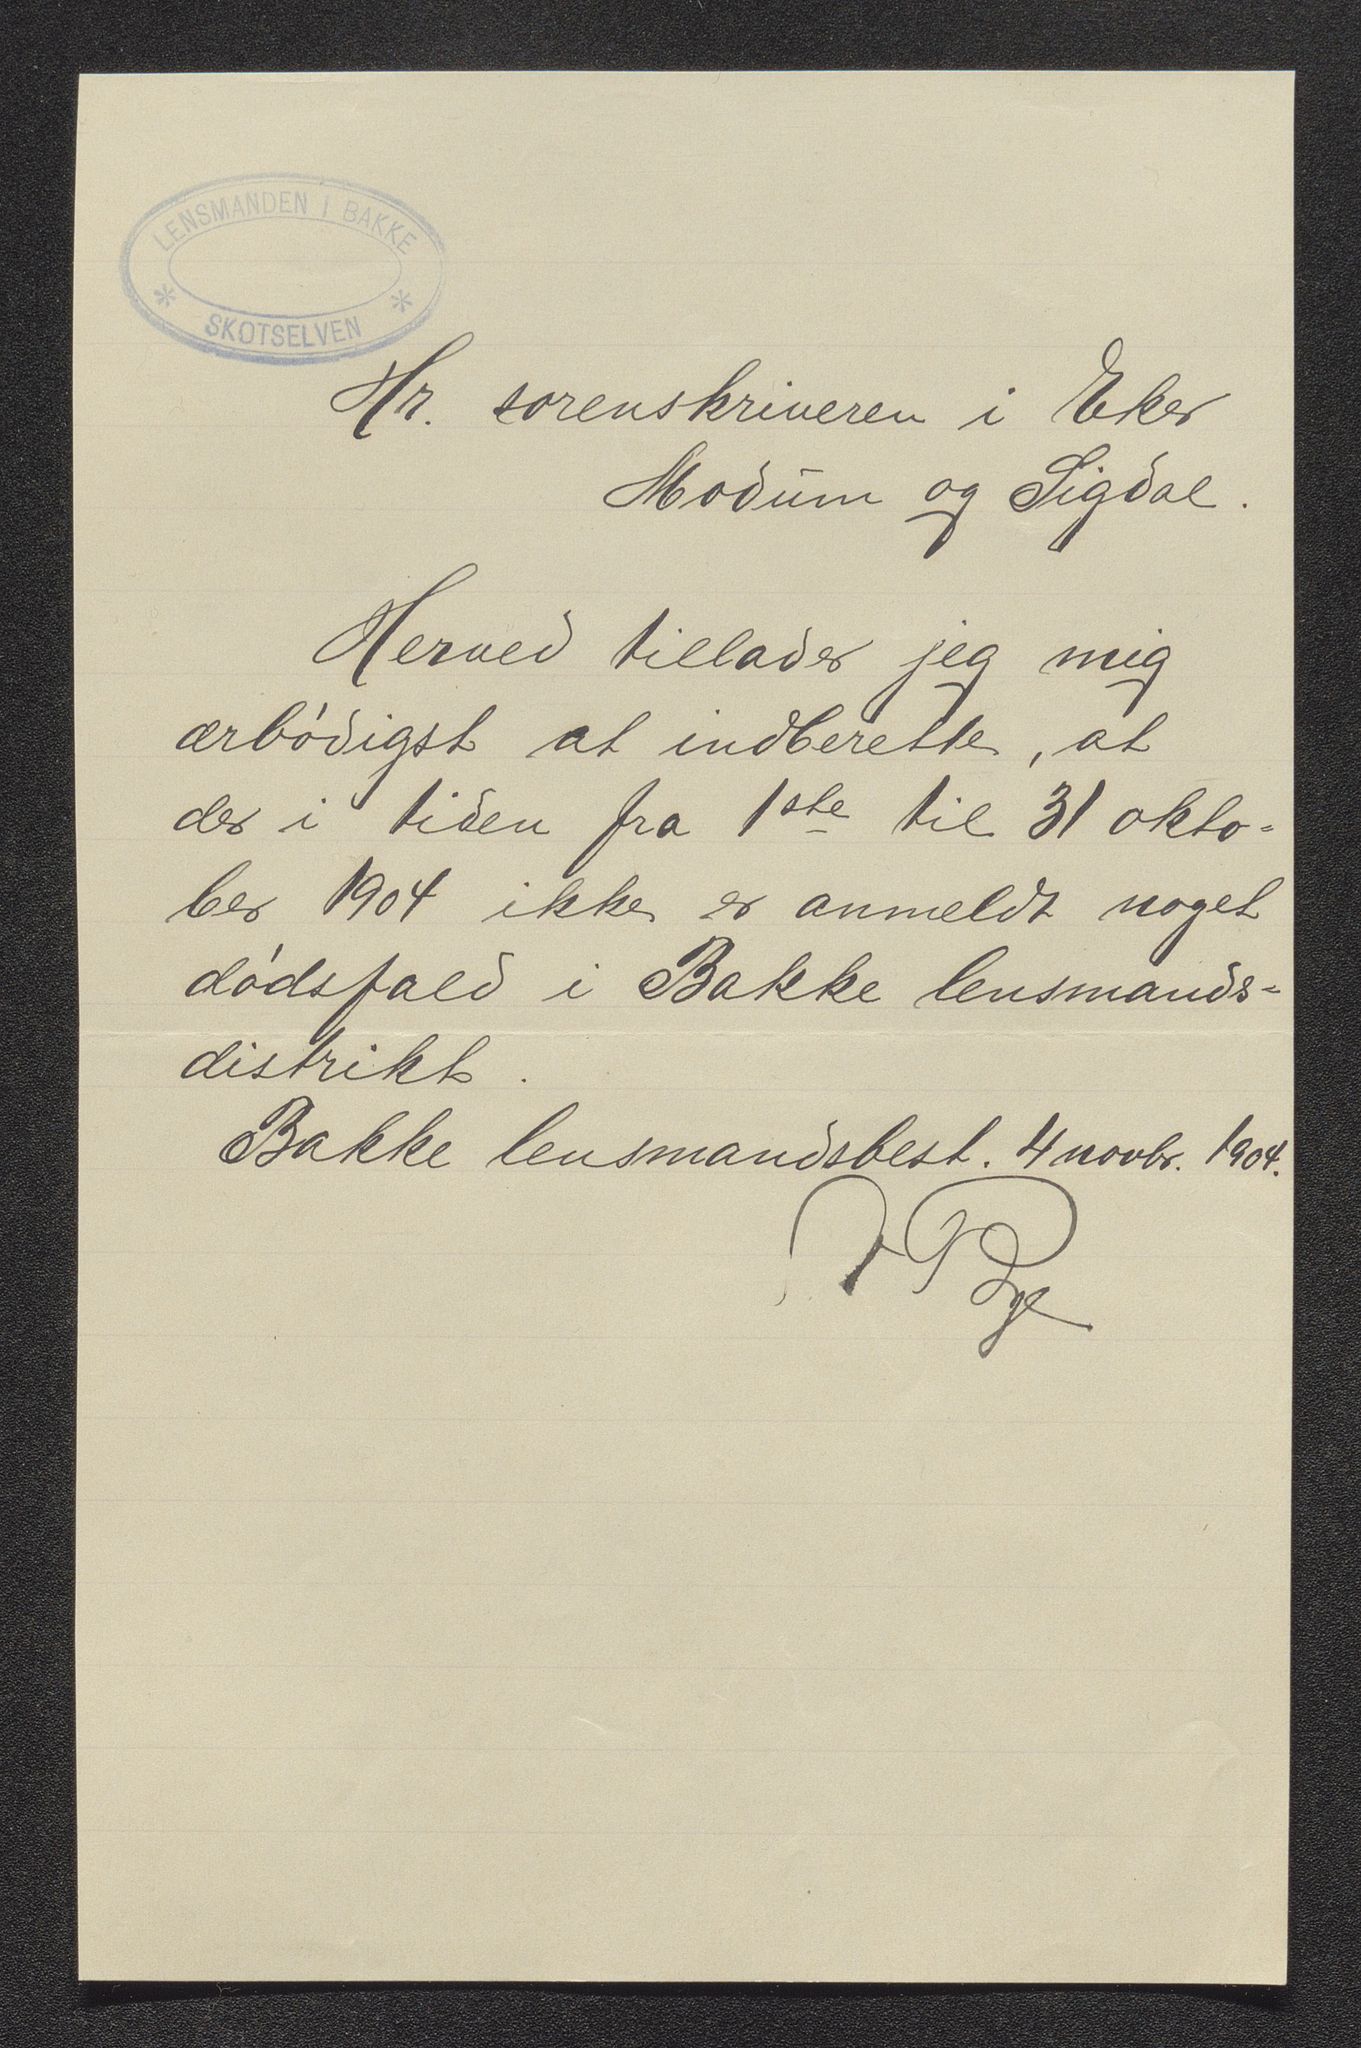 LENSMANDEN I BAKKE
* SKOTSELVEN *
Hr. sorenskriveren i Eker
Modum og Sigdal.
Herved tillader jeg mig
ærbødigst at indberette, at
der i tiden fra 1ste til 31 okto-
ber 1904 ikke er anmeldt noget
dødsfald i Bakke lensmands-
distrikt.
Bakke lensmandsbest. 4 novbr. 1904.